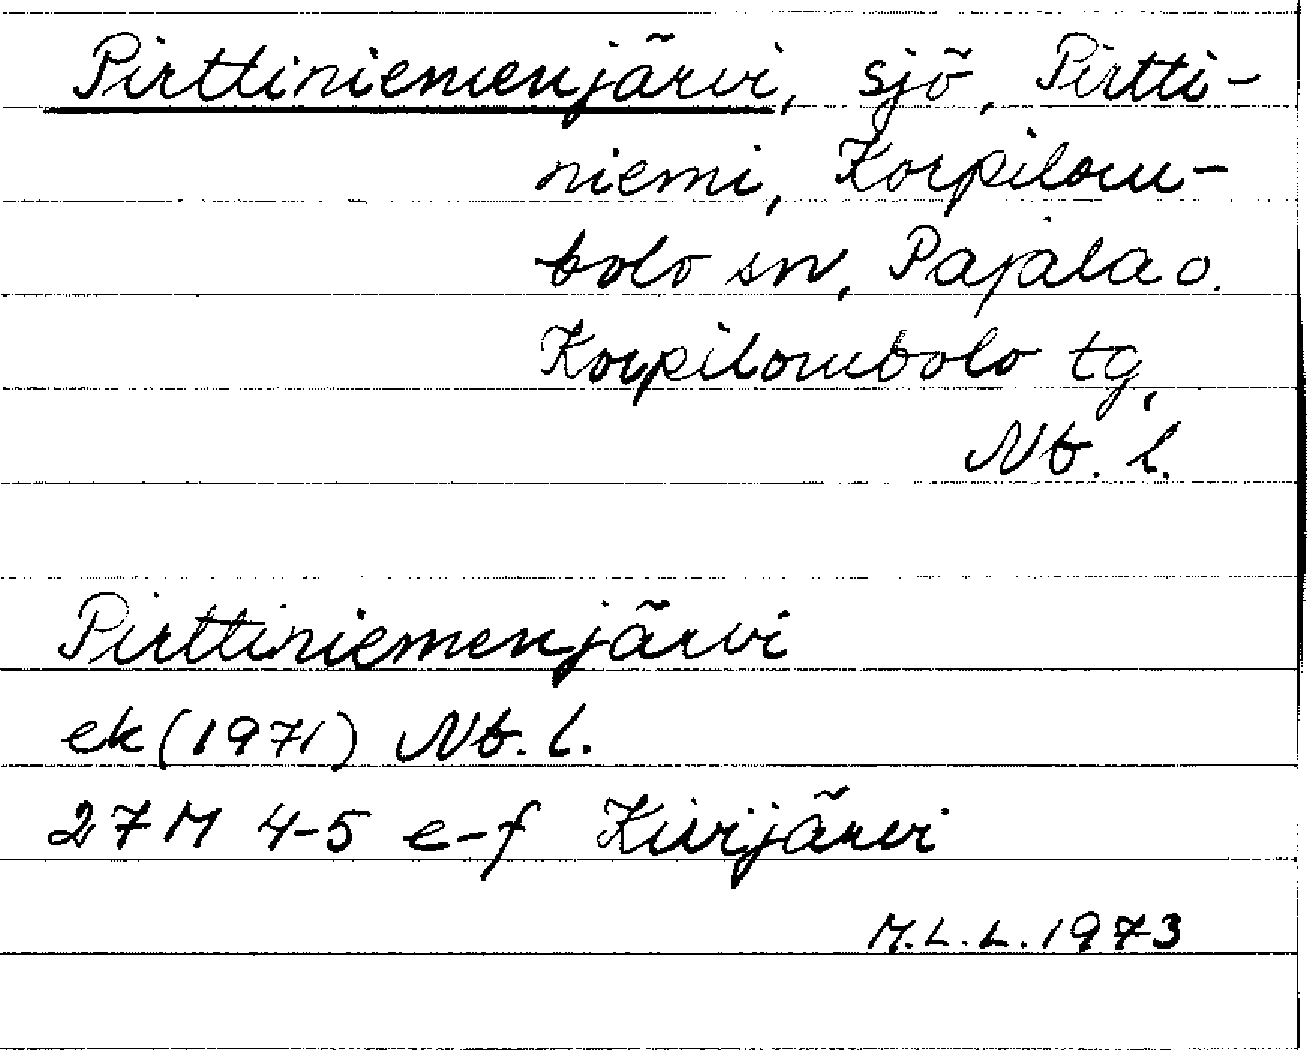 Pirttiniemenjärvi, sjö, Pirtti-
niemi, Korpilom-
bolo sn, Pajala o.
Korpilombolo tg,
Nb. l.
Pirttiniemenjärvi
ek (1971) Nb. l.
27 M 4-5 e-f Kivijärvi
M.L.L. 1973